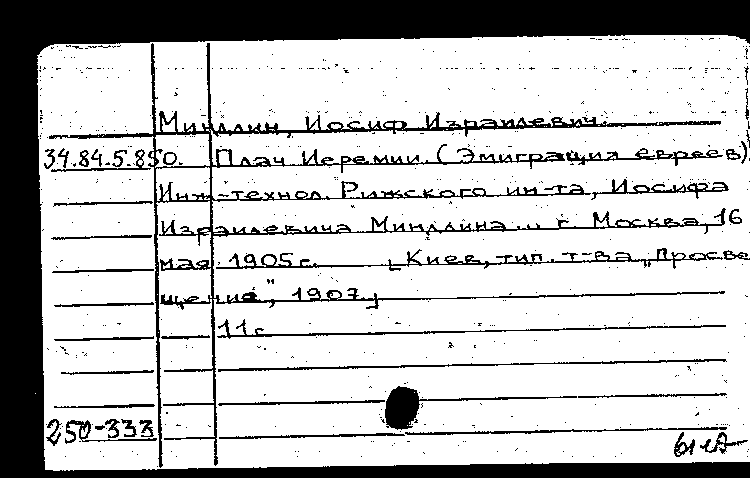 Миндлин, Иосиф Израилевич.
34.84.5.850. Плач Иеремии. (Эмиграция евреев)
Инж-технол. Рижского ин-та, Иосифа
Израилевича Миндлина... г. Москва, 16
мая 1905 г. [Киев, тип. т-ва „Просве
щение", 1907]
11 с
250-333